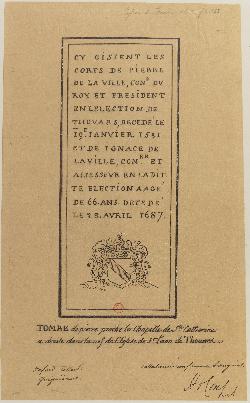 CY GISSENT LES
CORPS DE PIERRE
DE LA VILLE, CON.R DU
ROY ET PRESIDENT
EN LELECTION DE
THOVARS, DECEDE LE
19E IANVIER 1581
ET DE IGNACE DE
LAVILLE, CON.ER ET
ASSESSEVR EN LADIT
TE ELECTION AAGÉ
DE 66 ANS. DECEDÉ
LE 28. AVRIL 1687.
TOMBE de pierre proche la Chapelle de Ste. Catherine
a droite dans la nef de l'Eglise de St. Laon de Thouars.